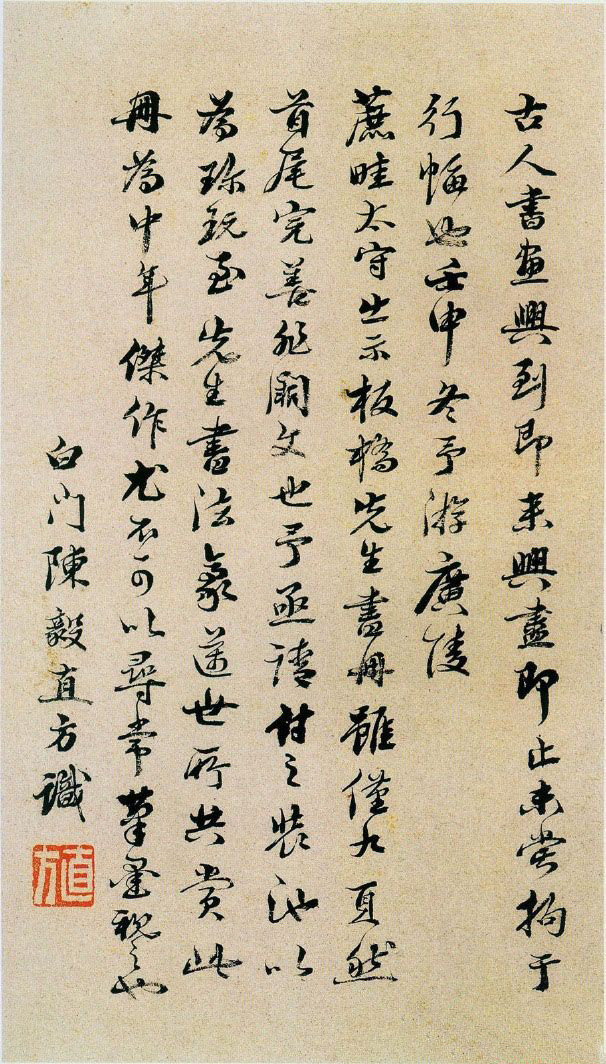 古人書畫興到即來興盡即止未嘗拘于
行幅也壬申冬予游廣陵
蔗畦太守出示板橋先生畫冊雖僅九頁然
首尾完善非闕文也予亟請付之裝池以
為珍玩至先生書法篆邃世所共賞此
冊為中年傑作尤不可以尋常筆墨視之也
白門陳毅直方識
直方